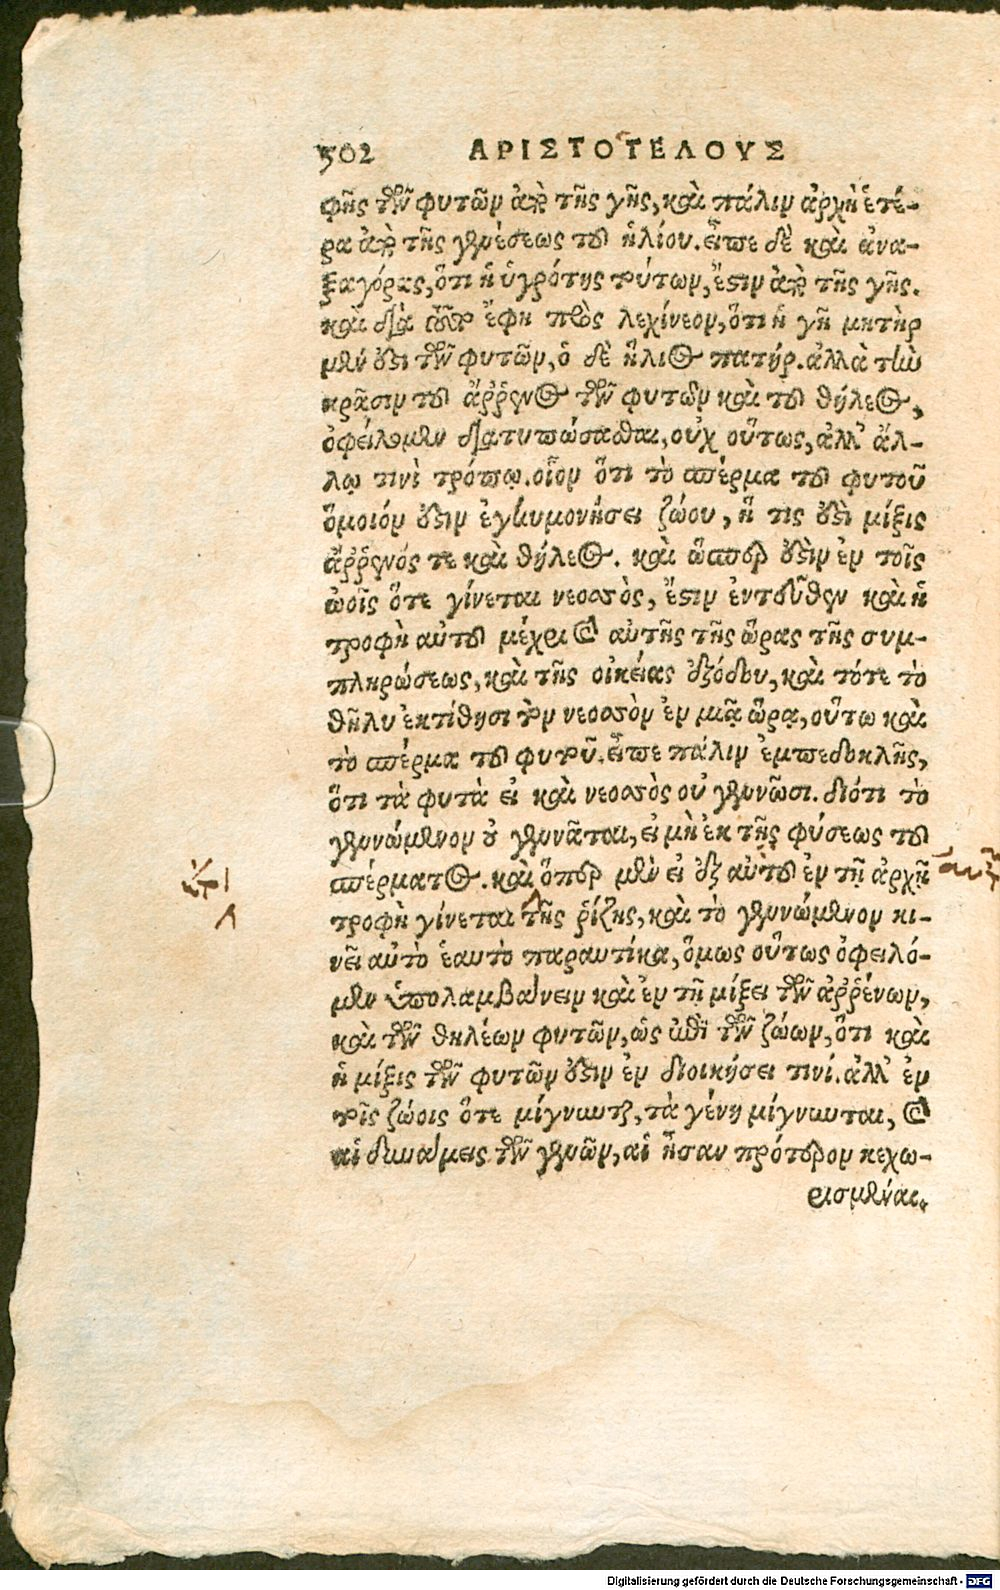 502 ΑΡΙΣΤΟΤΕΛΟΥΣ
φῆς τῶν φυτῶν ἀπὸ τῆς γῆς, καὶ πάλιν ἀρχὴ ἑτέ-
ρα ἀπὸ τῆς γενέσεως τοῦ ἡλίου. εἶπε δὲ καὶ ἀνα-
ξαγόρας, ὅτι ἡ ὑγρότης τούτων, ἔστιν ἀπὸ τῆς γῆς.
καὶ διὰ τοῦτο ἔφη πρὸς λεχίνεον, ὅτι ἡ γῆ μητὴρ
μέν ἐστι τῶν φυτῶν, ὁ δὲ ἥλιος πατήρ. ἀλλὰ τὴν
κρᾶσιν τοῦ ἄῤῥενος τῶν φυτῶν καὶ τοῦ θήλεος,
ὀφείλομεν διατυπώσασθαι, οὐχ οὕτως, ἀλλ' ἄλ-
λῳ τινὶ τρόπῳ. οἷον ὅτι τὸ σπέρμα τοῦ φυτοῦ
ὅμοιόν ἐστιν ἐγκυμονήσει ζώου, ἥ τις ἐστὶ μίξις
ἄῤῥενός τε καὶ θήλεος. καὶ ὥσπερ ἐστὶν ἐν τοῖς
ὠοῖς ὅτε γίνεται νεοσσὸς, ἔστιν ἐντεῦθεν καὶ ἡ
τροφὴ αὐτοῦ μέχρι καὶ αὐτῆς τῆς ὥρας τῆς συμ-
πληρώσεως, καὶ τῆς οἰκείας ἐξόδου, καὶ τότε τὸ
θῆλυ ἐκτίθησι τὸν νεοσσὸν ἐν μιᾷ ὥρᾳ, οὕτω καὶ
τὸ σπέρμα τοῦ φυτοῦ. εἶπε πάλιν ἐμπεδοκλῆς,
ὅτι τὰ φυτὰ εἰ καὶ νεοσσὸς οὐ γεννῶσι. διότι τὸ
γεννώμενον οὐ γεννᾶται, εἰ μὴ ἐκ τῆς φύσεως τοῦ
σπέρματος. καὶ ὅπερ μὲν εἰ ἐξ αὐτοῦ ἐν τῇ ἀρχῇ
τροφὴ γίνεται τῆς ῥίζης, καὶ τὸ γεννώμενον κι-
νεῖ αὐτὸ ἑαυτὸ παραυτίκα, ὅμως οὕτως ὀφειλό-
μεν ὑπολαμβάνειν καὶ ἐν τῇ μίξει τῶν ἀῤῥένων,
καὶ τῶν θηλέων φυτῶν, ὡς ἐπὶ τῶν ζώων, ὅτι καὶ
ἡ μίξις τῶν φυτῶν ἐστιν ἐν διοικήσει τινί. ἀλλ' ἐν
τοῖς ζώοις ὅτε μίγνυνται, τὰ γένη μίγνυνται, καὶ
αἱ δυνάμεις τῶν γενῶν, αἱ ἦσαν πρότερον κεχω-
ρισμέναι.
Digitalisierung gefördert durch die Deutsche Forschungsgemeinschaft - DFG